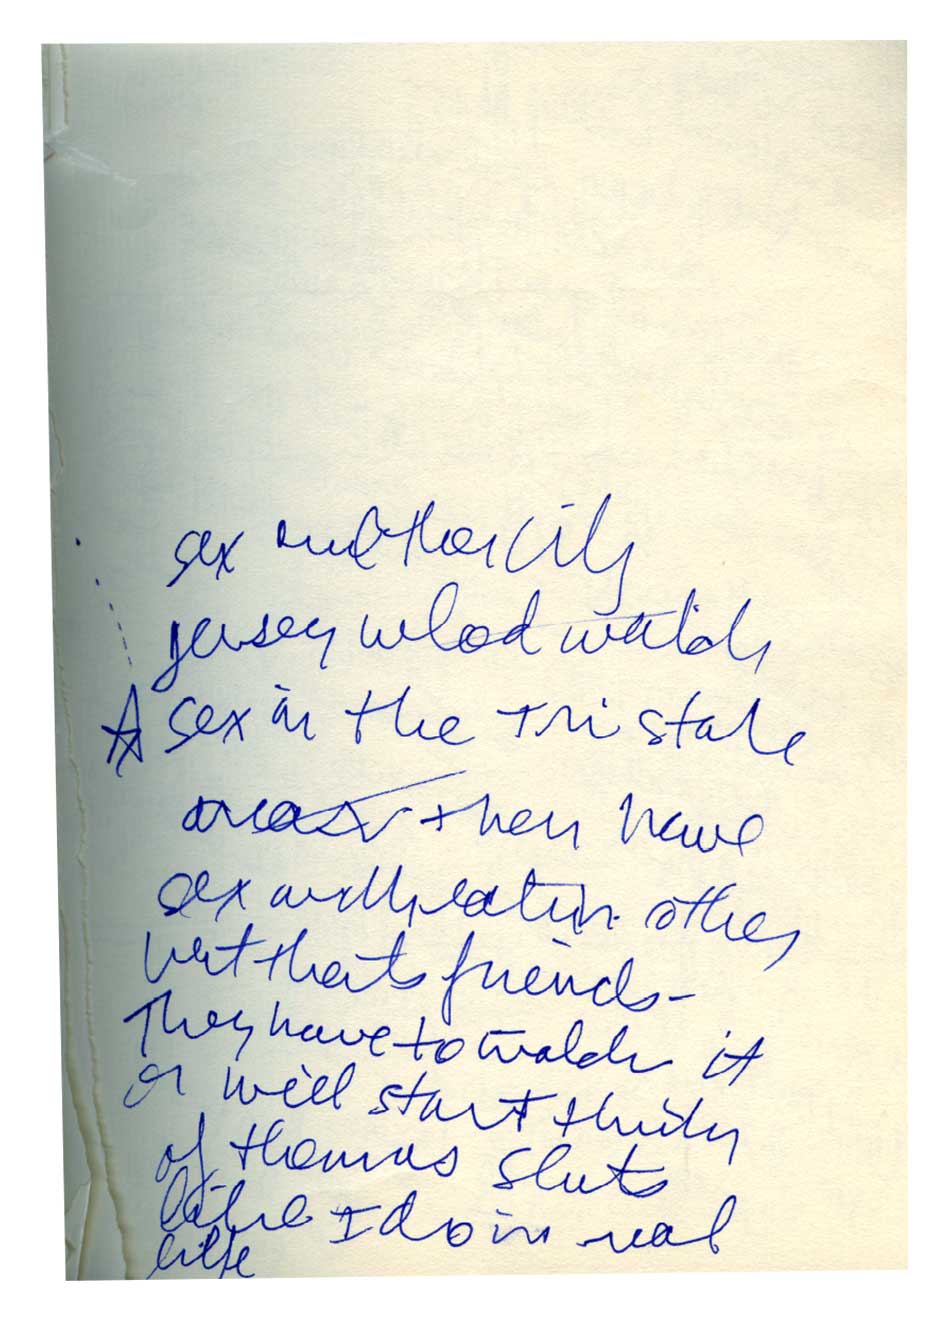 sex and the city
jersey watch
sex in the tri state
area then have
sex with eatin other
but thats friends-
They have to watch it
or will start thinkin
of them as sluts
like I do in real
life